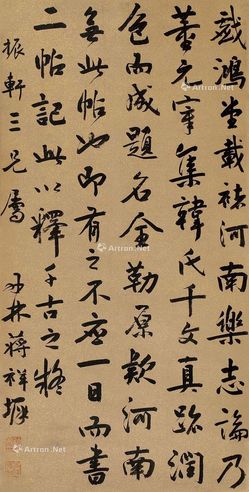 戲鴻堂載褚河南樂志論乃
董元宰集韓氏千文真跡潤
色而成題名全勒原款河南
無此帖也即有之不應一日而書
二帖記此以釋千古之疑
振軒三兄屬 丹林蔣祥墀
Artron.Net
Artron.Net
Artron.Net
Artron.Net